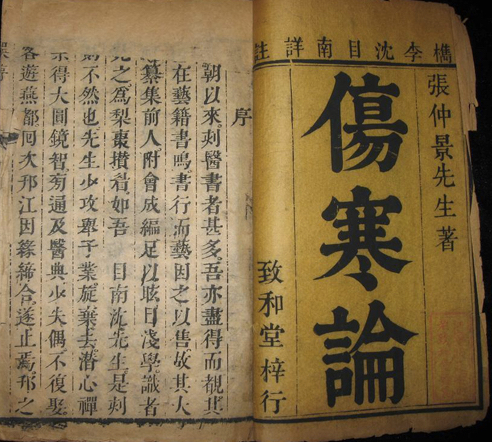 檇李沈目南詳註
張仲景先生著
傷寒論
致和堂 梓行
序
朝以來刻醫書者甚多吾亦盡得而覩其
在藝籍書鳴書行而藝因之以售故其大
纂集前人附會成編足以眩目淺學識者
之爲梨棗攢眉如吾 目南沈先生是刻
則不然也先生少攻舉子業旋棄去潛心禪
宗得大圓鏡智旁通及醫典少失偶不復娶
客遊燕都回次邗江因緣締合遂止焉邗之